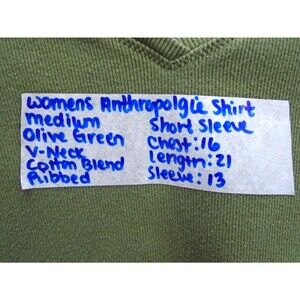 Womens Anthropolgie Shirt
medium
Olive Green
V-Neck
Cotton Blend
Ribbed
Short Sleeve
Chest: 16
Length: 21
Sleeve: 13